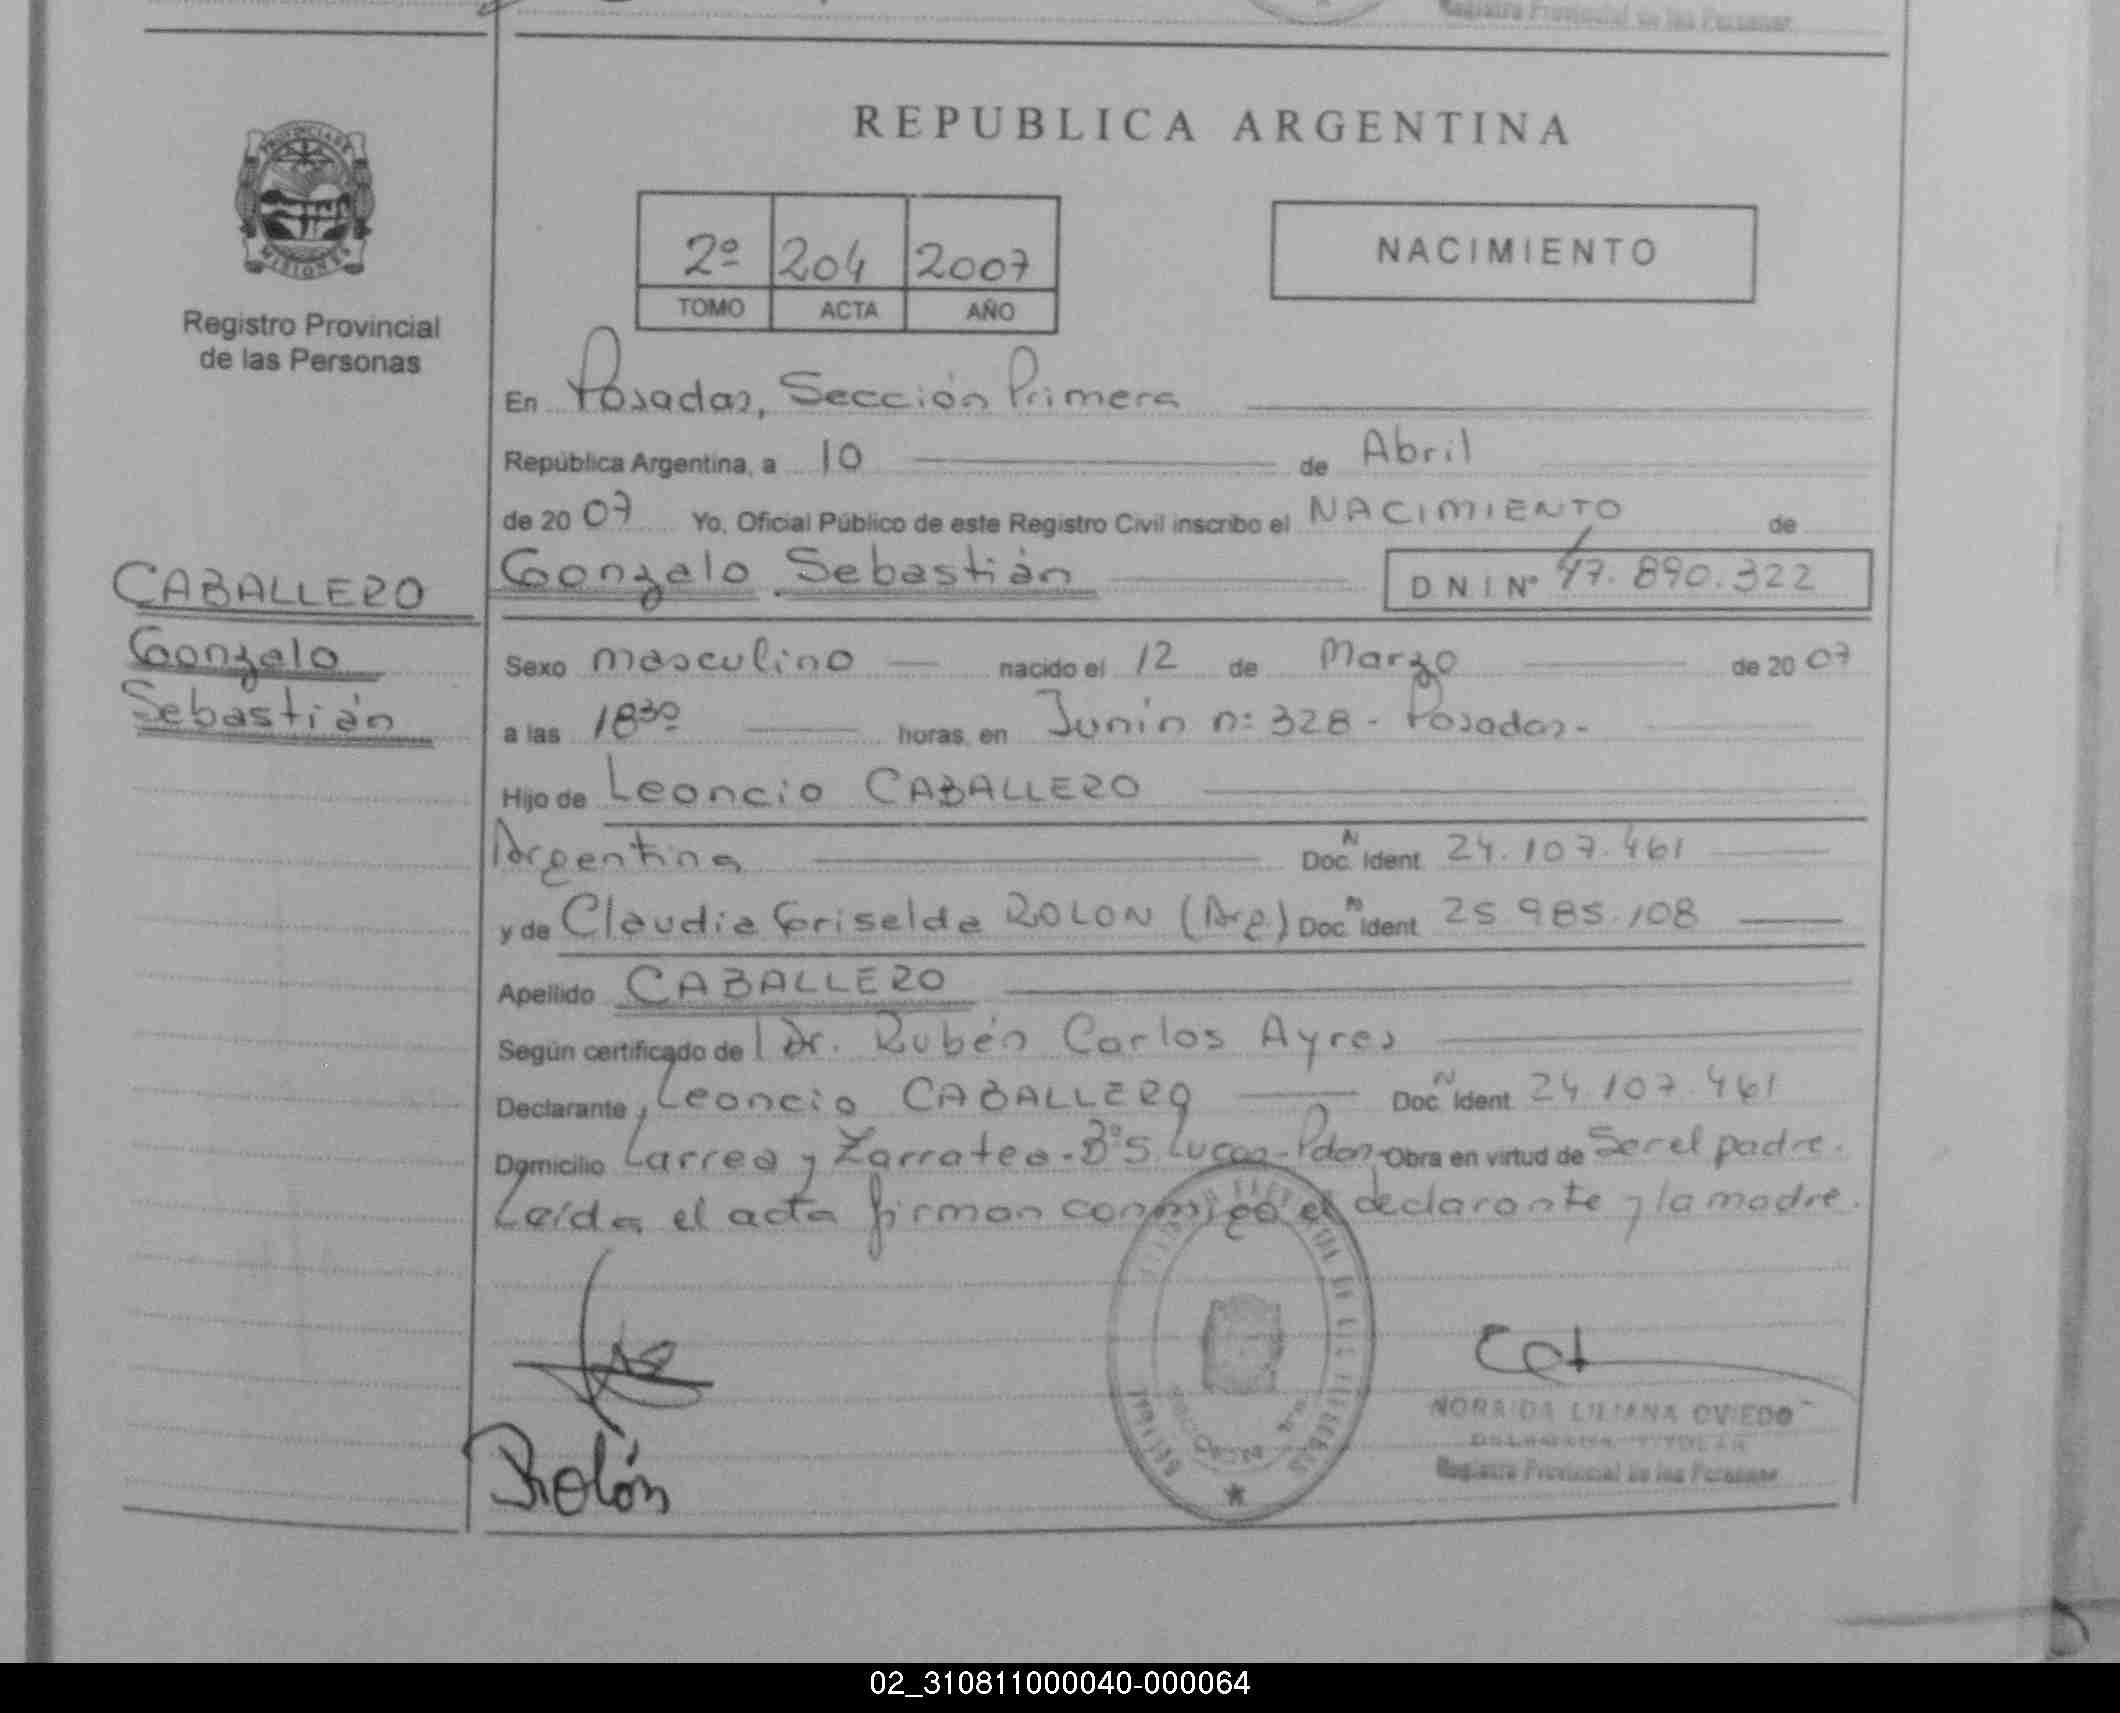 Registro Provincial de las Personas
REPUBLICA ARGENTINA
PROVINCIA DE
MISIONES
Registro Provincial
de las Personas
2º 204 2007
TOMO ACTA AÑO
NACIMIENTO
En Posadas, Sección Primera
República Argentina, a 10 de Abril
de 2007 Yo, Oficial Público de este Registro Civil inscribo el NACIMIENTO de
CABALLERO
Gonzalo
Sebastián
Gonzalo Sebastián DNI Nº 47.890.322
Sexo masculino nacido el 12 de Marzo de 2007
a las 18³⁰ horas, en Junín nº 328 - Posadas -
Hijo de Leoncio CABALLERO
Argentina Doc. N Ident. 24.107.461
y de Claudia Griselda ROLON (Arg) Doc. N Ident. 25.985.108
Apellido CABALLERO
Según certificado del Dr. Rubén Carlos Ayres
Declarante, Leoncio CABALLERO Doc. N Ident. 24.107.461
Domicilio Larrea y Zarratea - Bº S. Lucas - Pdas. Obra en virtud de Ser el padre.
Leída el acta firman conmigo el declarante y la madre.
Rolón
NORAIDA LILIANA OVIEDO
DELEGADA TITULAR
Registro Provincial de las Personas
02_310811000040-000064